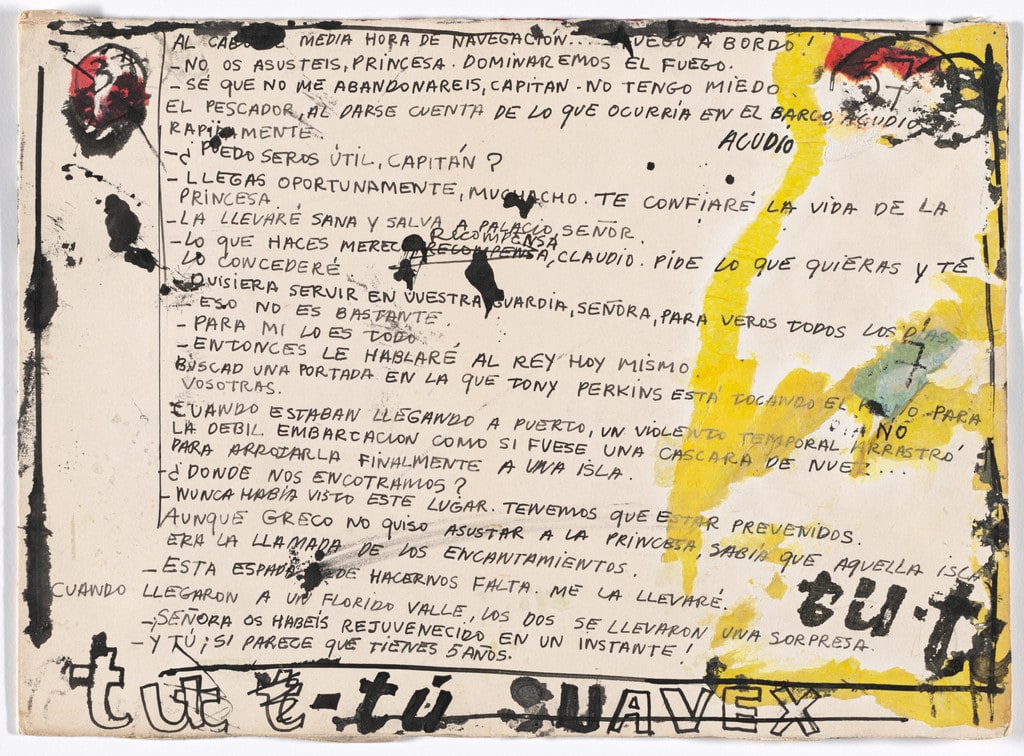 AL CABO DE MEDIA HORA DE NAVEGACIÓN.... FUEGO A BORDO!
-NO OS ASUSTEIS, PRINCESA. DOMINAREMOS EL FUEGO.
-SÉ QUE NO ME ABANDONAREIS, CAPITAN. NO TENGO MIEDO
EL PESCADOR, AL DARSE CUENTA DE LO QUE OCURRÍA EN EL BARCO, ACUDIO
ACUDIÓ
RAPIDAMENTE.
-¿PUEDO SEROS ÚTIL, CAPITÁN?
-LLEGAS OPORTUNAMENTE, MUCHACHO. TE CONFIARÉ LA VIDA DE LA
PRINCESA.
-LA LLEVARÉ SANA Y SALVA A PALACIO, SEÑOR.
RECOMPENSA
-LO QUE HACES MERECE RECOMPENSA, CLAUDIO. PIDE LO QUE QUIERAS Y TE
LO CONCEDERÉ
QUISIERA SERVIR EN VUESTRA GUARDIA, SEÑORA, PARA VEROS TODOS LOS DÍAS
-ESO NO ES BASTANTE.
-PARA MI LO ES TODO
-ENTONCES LE HABLARÉ AL REY HOY MISMO.
BUSCAD UNA PORTADA EN LA QUE TONY PERKINS ESTÁ TOCANDO EL PARA
VOSOTRAS.
PIANO
CUANDO ESTABAN LLEGANDO A PUERTO, UN VIOLENTO TEMPORAL ARRASTRÓ
LA DEBIL EMBARCACION COMO SI FUESE UNA CASCARA DE NUEZ....
PARA ARROJARLA FINALMENTE A UNA ISLA.
-¿DONDE NOS ENCOTRAMOS?
-NUNCA HABÍA VISTO ESTE LUGAR. TENEMOS QUE ESTAR PREVENIDOS.
AUNQUE GRECO NO QUISO ASUSTAR A LA PRINCESA, SABÍA QUE AQUELLA ISLA
ERA LA LLAMADA DE LOS ENCANTAMIENTOS.
-ESTA ESPADA PUEDE HACERNOS FALTA. ME LA LLEVARÉ.
CUANDO LLEGARON A UN FLORIDO VALLE, LOS DOS SE LLEVARON UNA SORPRESA.
-¡SEÑORA OS HABEÍS REJUVENECIDO EN UN INSTANTE!
-Y TÚ ¡SI PARECE QUE TIENES 5 AÑOS.
tu-t
tut t-tú SUAVEX